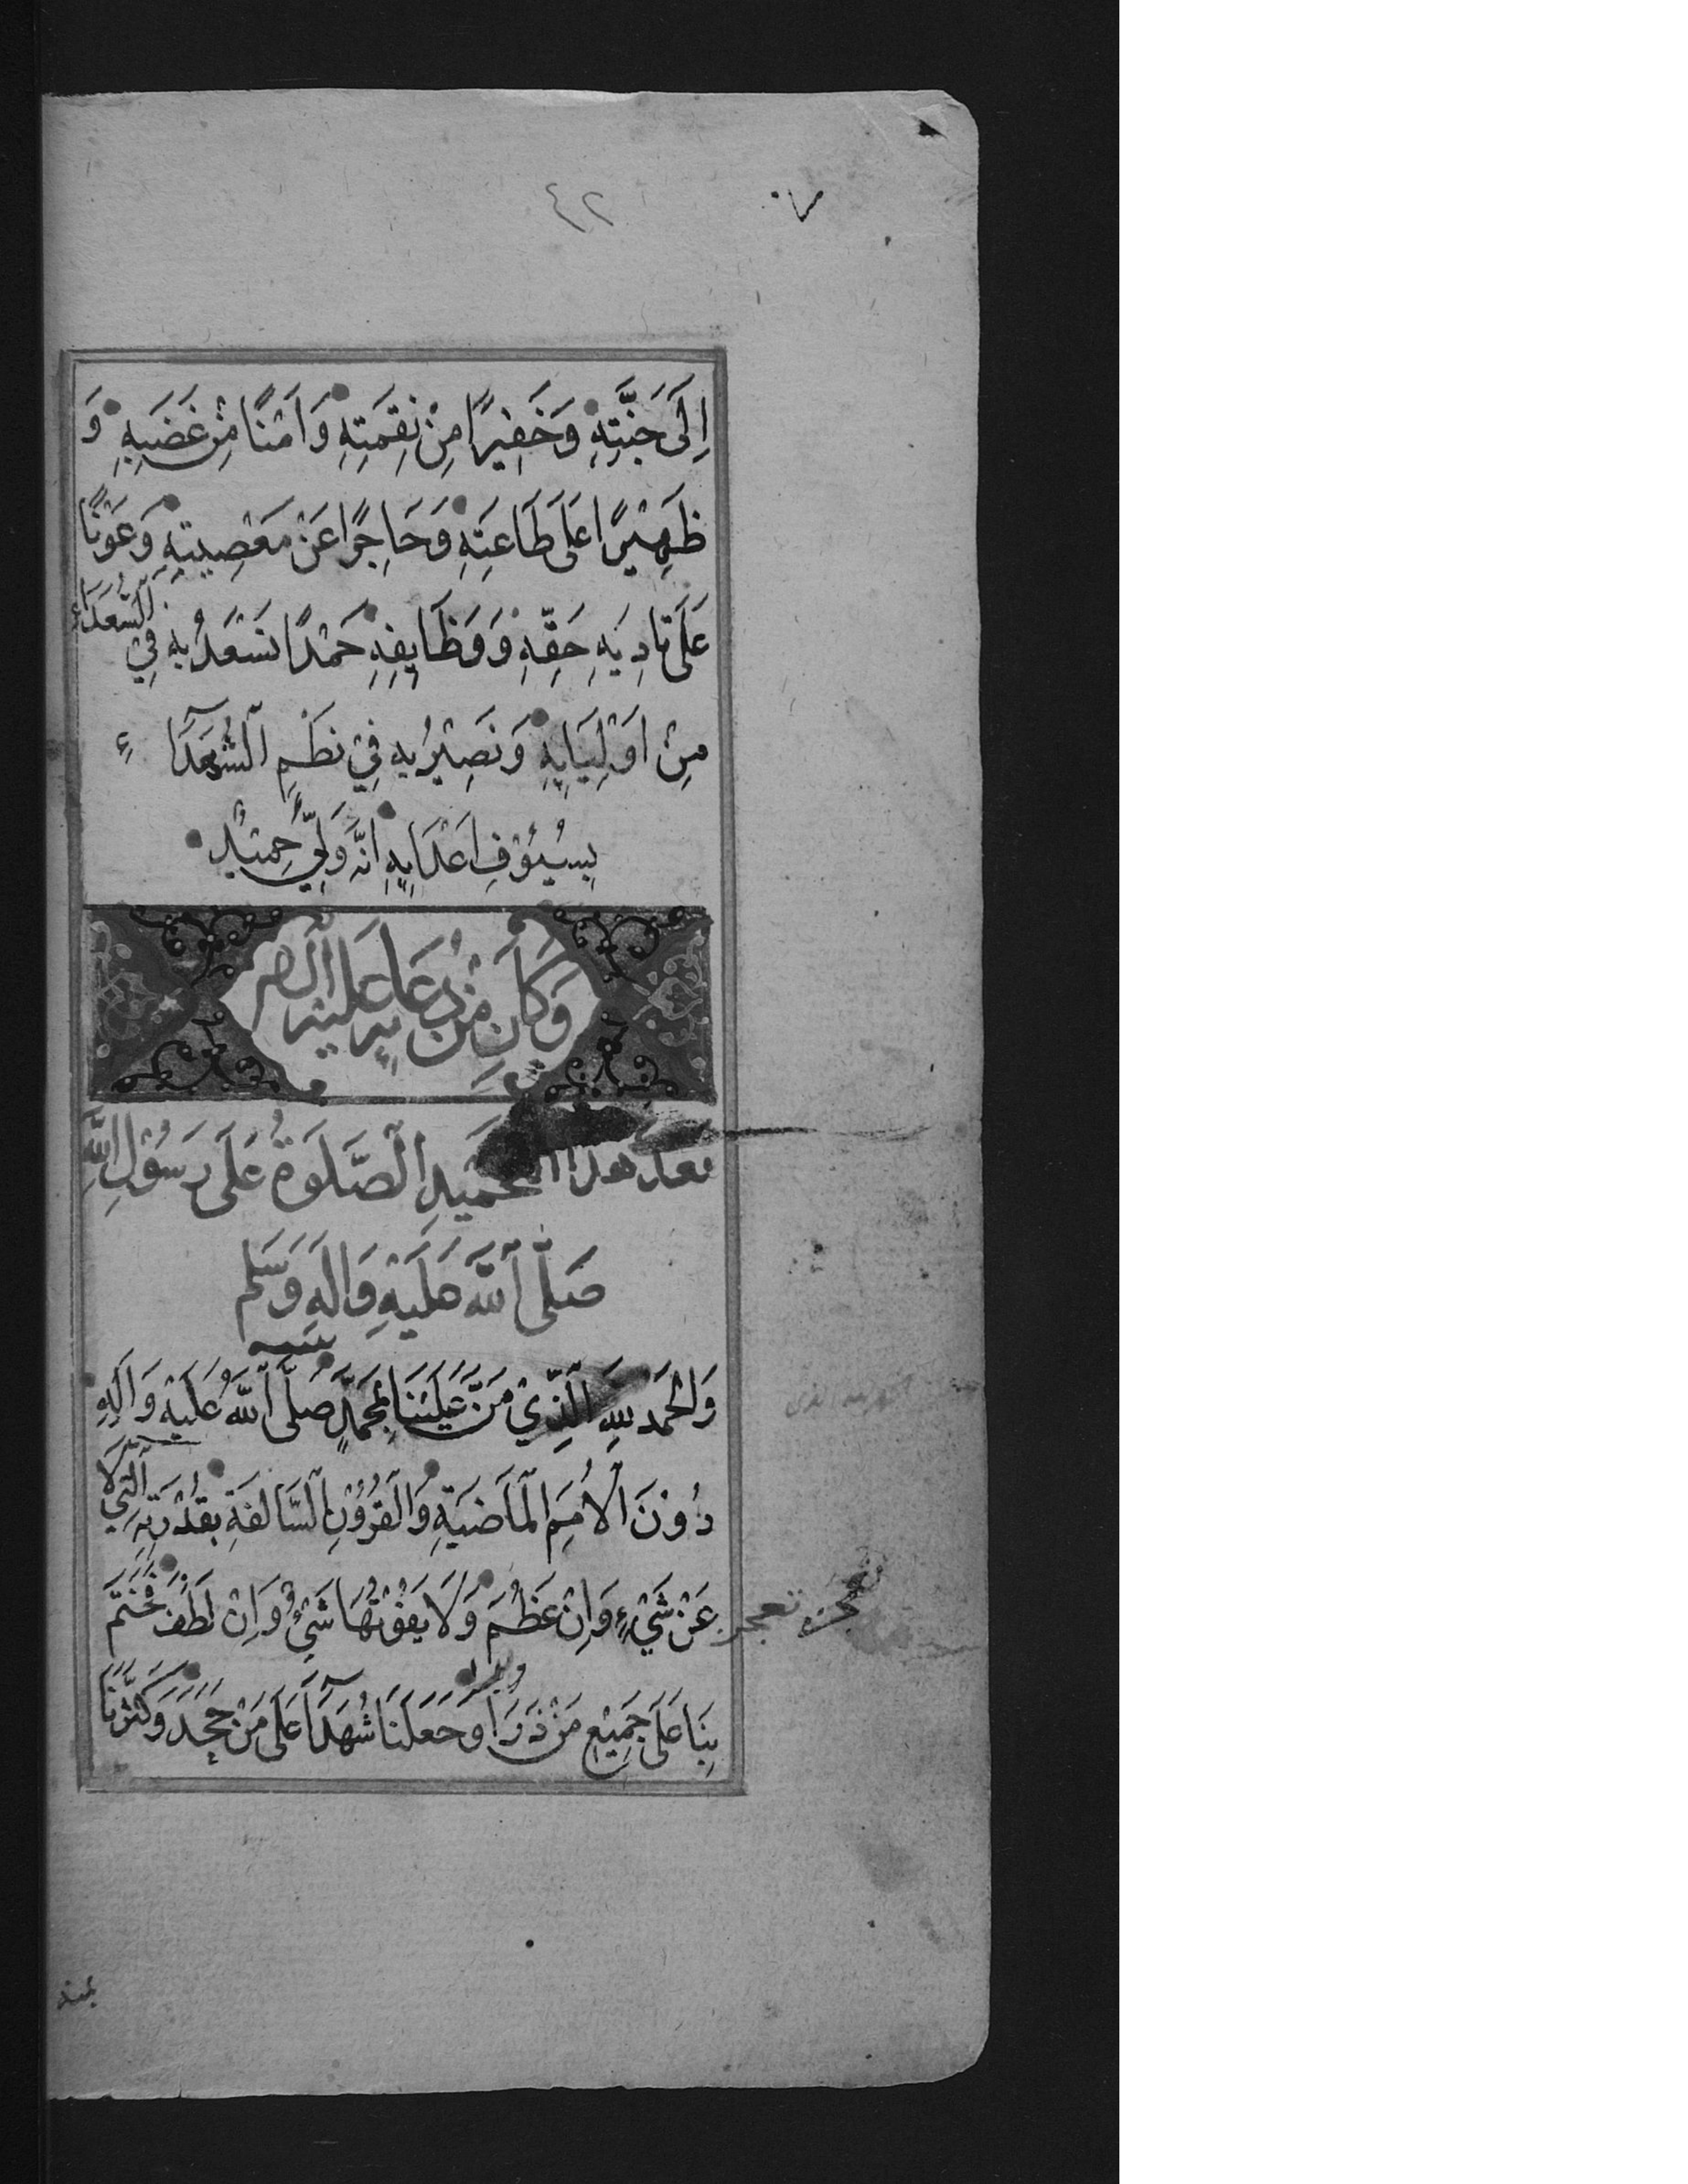 ٤٢ ٧٠
اِلَى جَنَّتِهِ وَخَفِيرًا مِنْ نِقَمَتِهِ وَاَمْنًا مِنْ غَضَبِهِ وَ
ظَهِيْرًا عَلَى طَاعَتِهِ وَحَاجِزًا عَنْ مَعْصِيَتِهِ وَعَوْنًا
عَلَى تَادِيَةِ حَقِّهِ وَوَظَايِفِهِ حَمْدًا نَسْعَدُ بِهِ فِي السُّعَدَاءِ
مِنْ اَوْلِيَايِهِ وَنَصِيْرُ بِهِ فِيْ نَظْمِ الشُّهَدَآءِ
بِسُيُوْفِ اَعْدَايِهِ اِنَّهُ وَلِيٌّ حَمِيْدٌ
وَكَانَ مِنْ دُعَايِهِ عَلَيْهِ السَّلَام
بعد هذا التحميد الصَّلَوةُ عَلَى رَسُوْلِ اللهِ
صَلَّى اللهُ عَلَيْهِ وَالِهِ وَسَلَّم
وَالْحَمْدُ لِلهِ الَّذِيْ مَنَّ عَلَيْنَا بِمُحَمَّدٍ صَلَّى اللهُ عَلَيْهِ وَالِهِ
دُوْنَ الْاُمَمِ الْمَاضِيَةِ وَالْقُرُوْنِ السَّالِفَةِ بِقُدْرَتِهِ الَّتِي لَا
تعجز عَنْ شَيْءٍ وَاِنْ عَظُمَ وَلَا يَفُوْتُهَا شَيْءٌ وَاِنْ لَطُفَ فَخَتَمَ
بِنَا عَلَى جَمِيْعِ مَنْ ذَرَاَ وَجَعَلَنَا شُهَدَآءَ عَلَى مَنْ جَحَدَ وَكَثَّرَنَا
بمنه